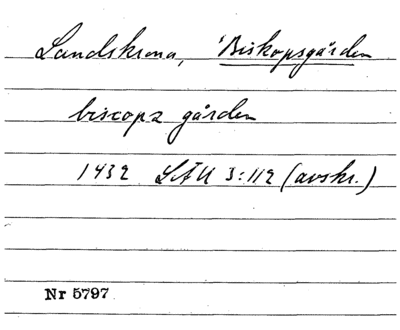 Landskrona, 'Biskopsgården
biscopz gården
1432 LÄU 3:112 (avskr.)
Nr 5797